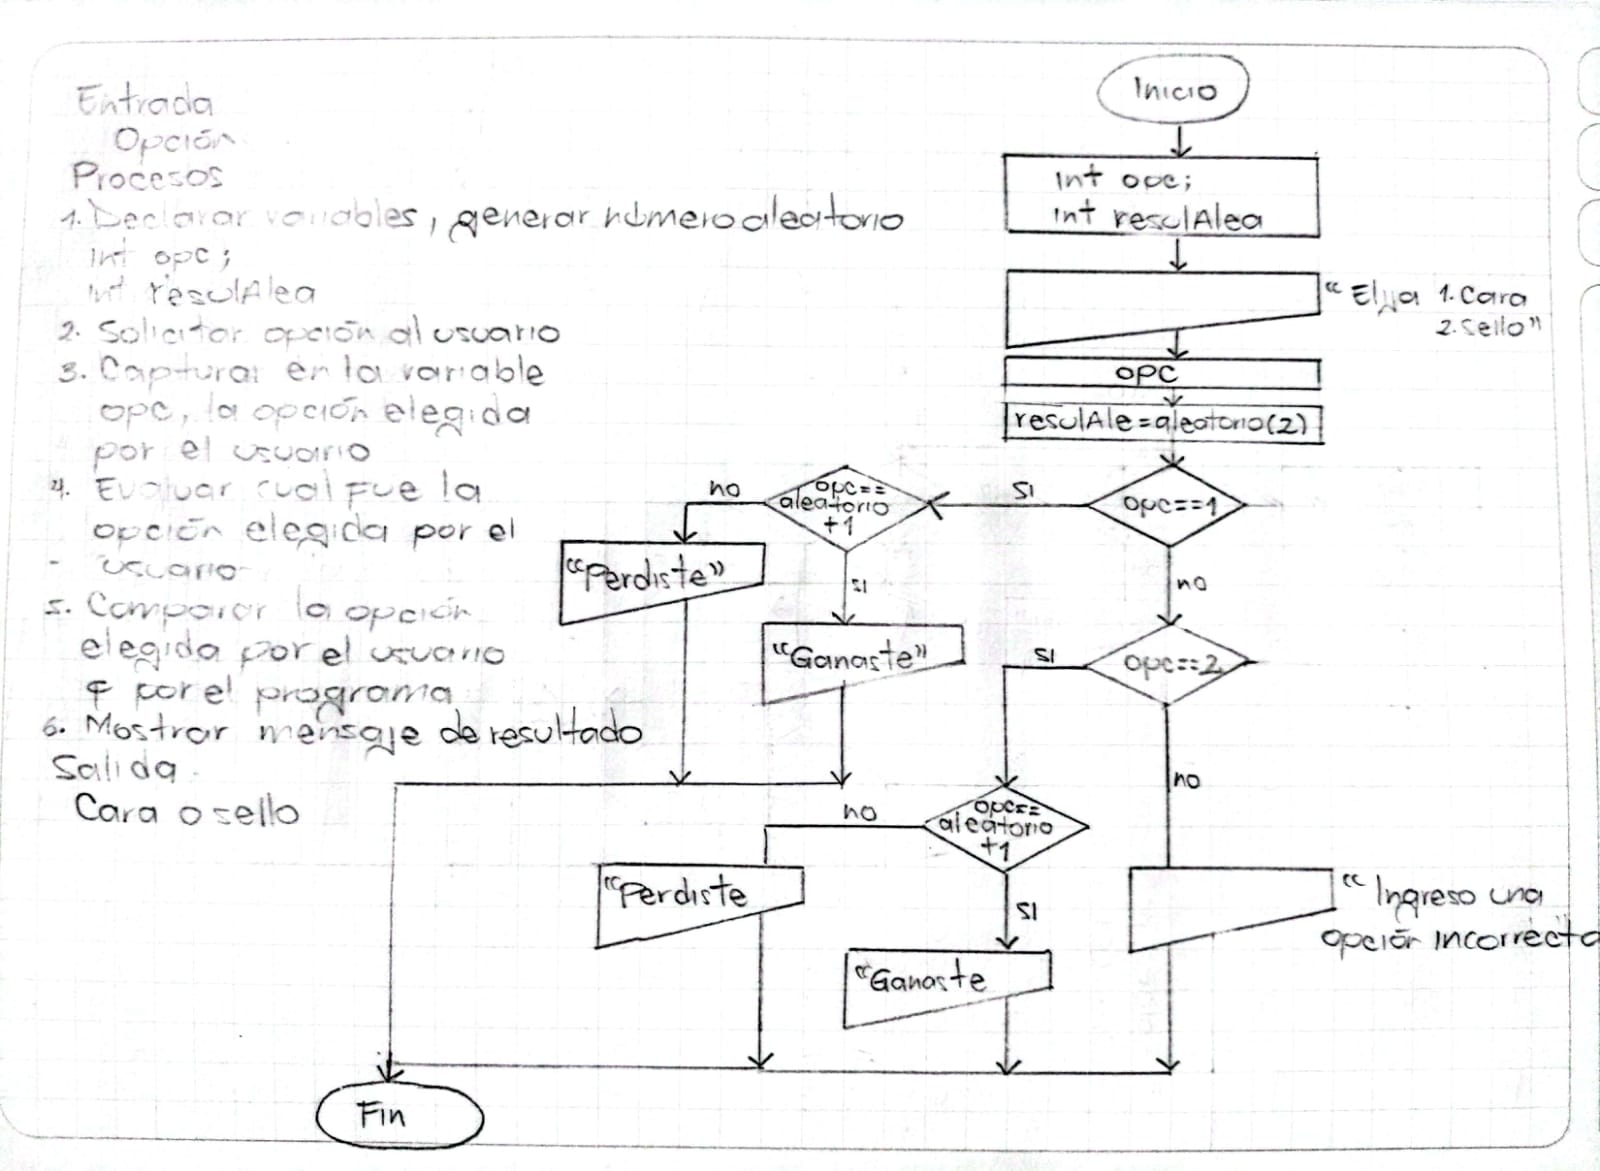 Entrada
Opción
Procesos
1. Declarar variables, generar número aleatorio
int opc;
int resulAlea
2. Solicitar opción al usuario
3. Capturar en la variable
opc, la opción elegida
por el usuario
4. Evaluar cual fue la
opción elegida por el
usuario
5. Comparar la opción
elegida por el usuario
por el programa
6. Mostrar mensaje de resultado
Salida
Cara o sello
Inicio
int opc;
int resulAlea
"Elija 1. Cara
2. Sello"
opc
resulAle=aleatorio(2)
opc==1
si
no
opc==
aleatorio
+1
no
si
"Perdiste"
"Ganaste"
opc==2
si
no
opc==
aleatorio
+1
no
si
"Perdiste
"Ganaste
"Ingreso una
opción incorrecta
Fin